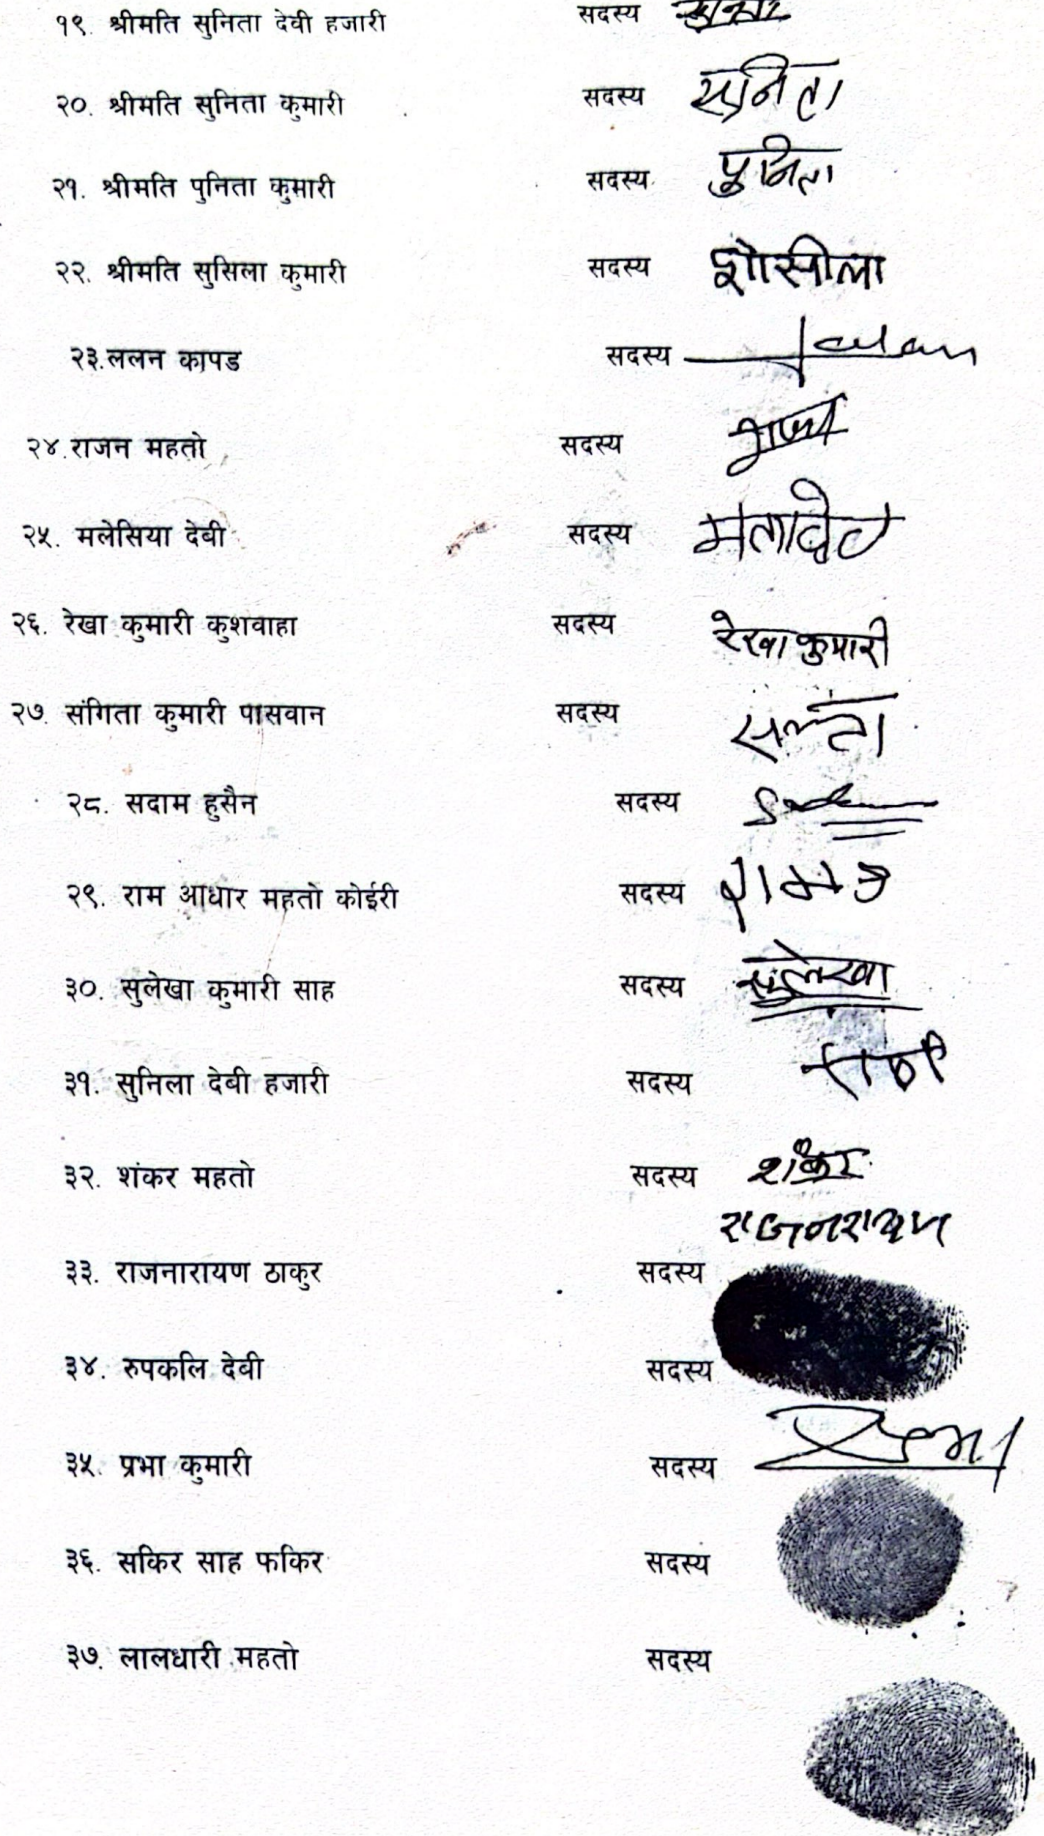 १९. श्रीमति सुनिता देवी हजारी सदस्य
२०. श्रीमति सुनिता कुमारी सदस्य सुनिता
२१. श्रीमति पुनिता कुमारी सदस्य पुनिता
२२. श्रीमति सुसिला कुमारी सदस्य शोसीला
२३.ललन कापड सदस्य Lalan
२४.राजन महतो सदस्य राजन
२५. मलेसिया देबी सदस्य
२६. रेखा कुमारी कुशवाहा सदस्य रेखा कुमारी
२७. संगिता कुमारी पासवान सदस्य
२८. सदाम हुसैन सदस्य
२९. राम आधार महतो कोईरी सदस्य
३०. सुलेखा कुमारी साह सदस्य सुलेखा
३१. सुनिला देबी हजारी सदस्य
३२. शंकर महतो सदस्य शंकर
राजनरायण
३३. राजनारायण ठाकुर सदस्य
३४. रुपकलि देबी सदस्य
३५. प्रभा कुमारी सदस्य
३६. सकिर साह फकिर सदस्य
३७. लालधारी महतो सदस्य